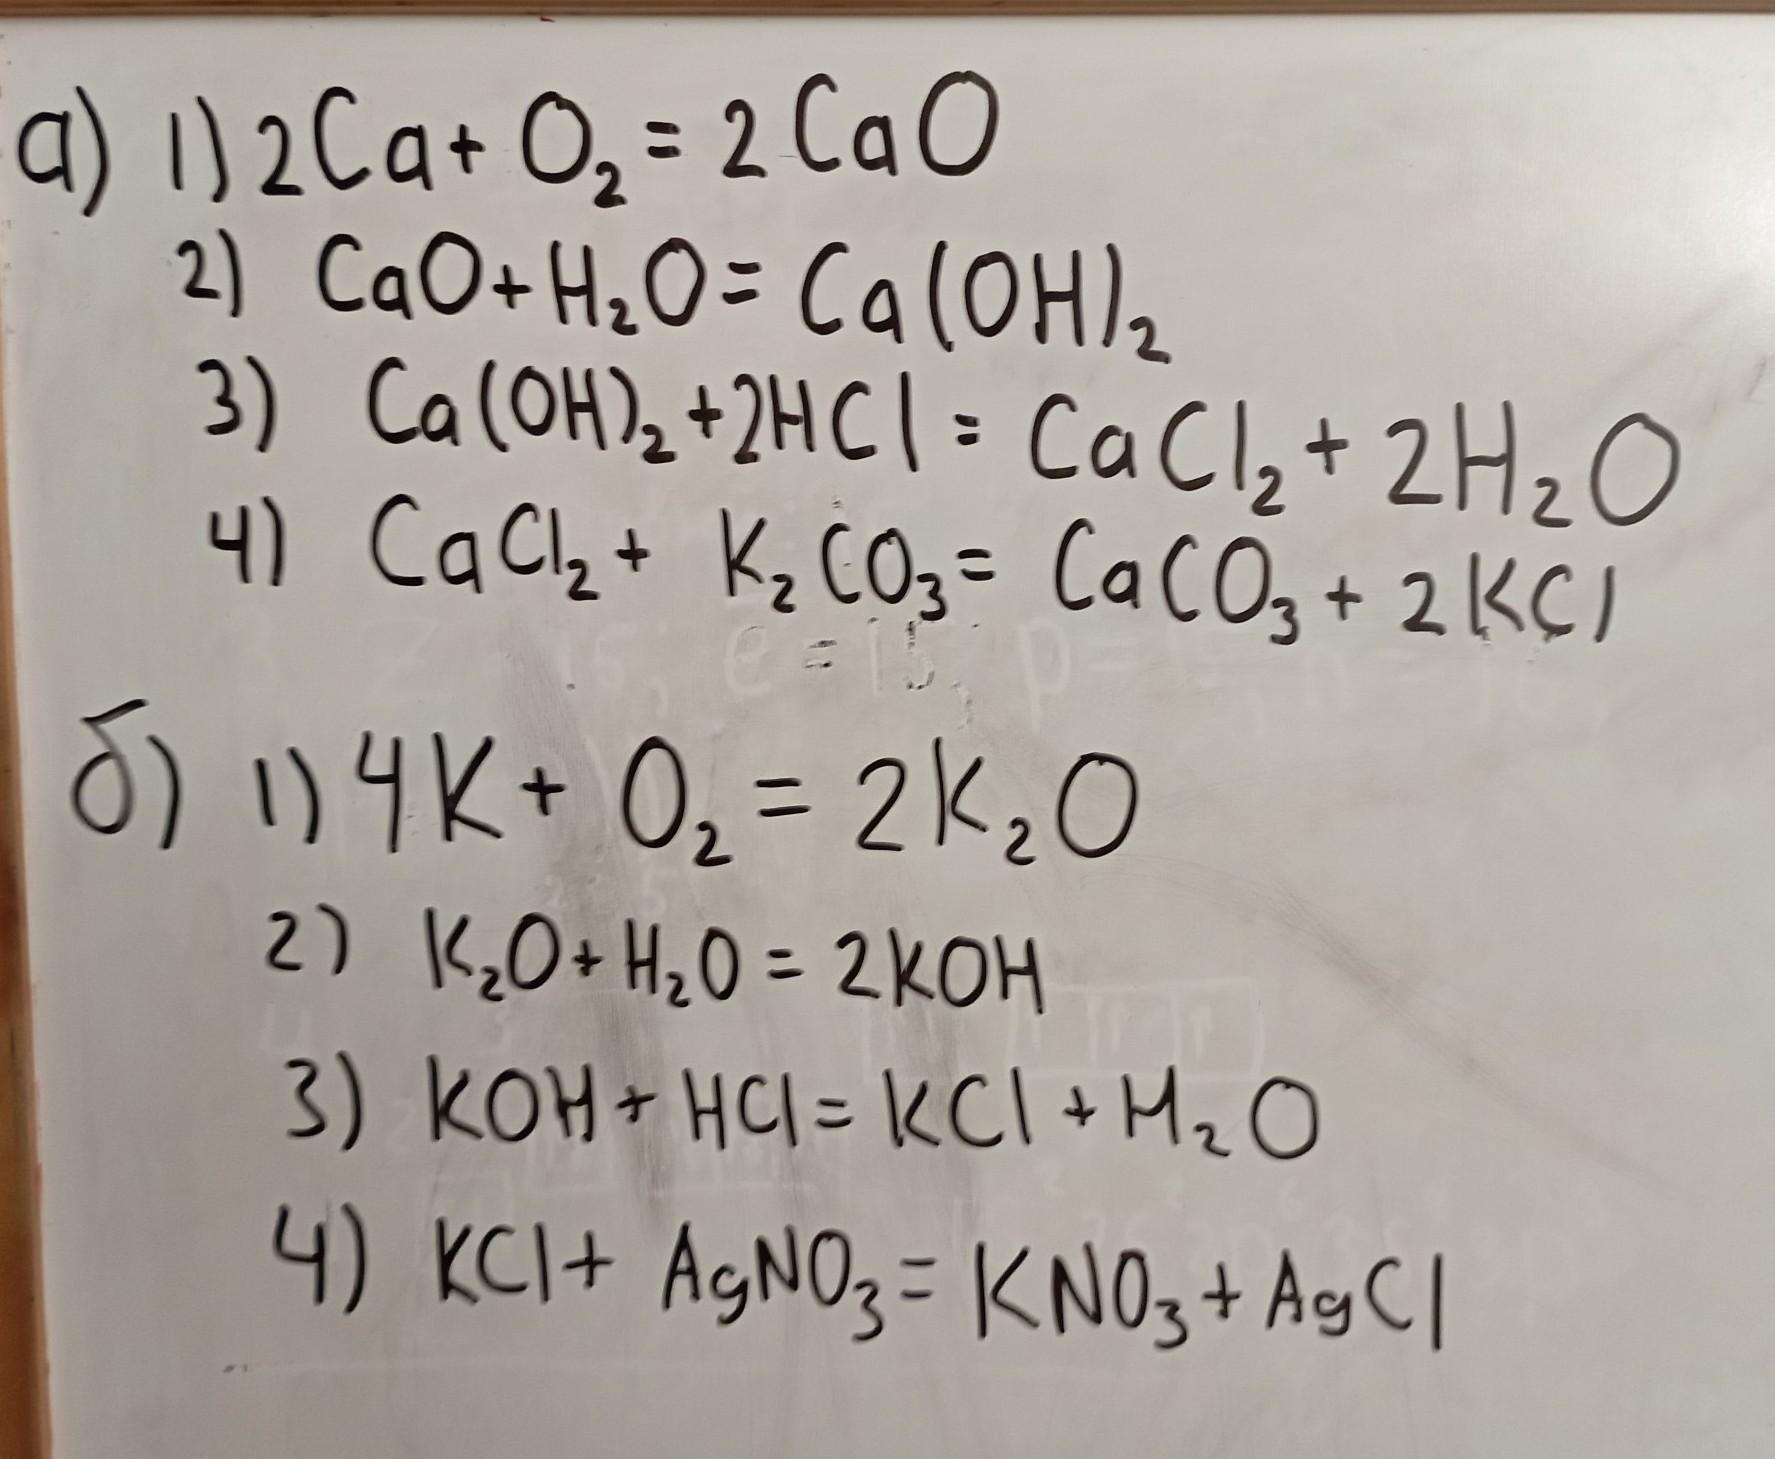 а) 1) 2Ca + O₂ = 2CaO
2) CaO + H₂O = Ca(OH)₂
3) Ca(OH)₂ + 2HCl = CaCl₂ + 2H₂O
4) CaCl₂ + K₂CO₃ = CaCO₃ + 2KCl
б) 1) 4K + O₂ = 2K₂O
2) K₂O + H₂O = 2KOH
3) KOH + HCl = KCl + H₂O
4) KCl + AgNO₃ = KNO₃ + AgCl